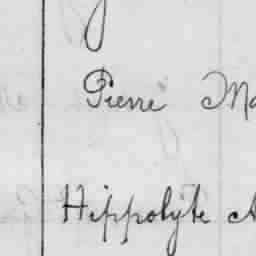 Pierre Ma
Hippolyte A